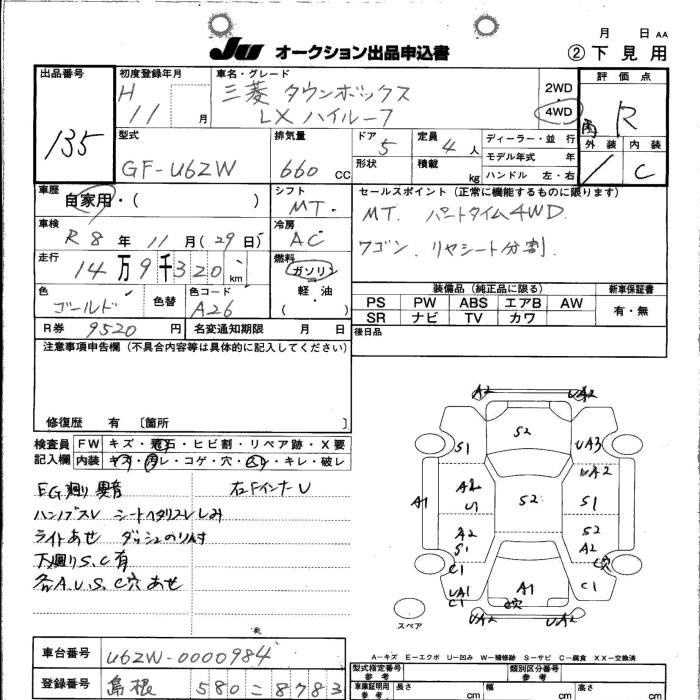 月 日 AA
JU オークション出品申込書 ② 下見用
出品番号 135
初度登録年月 H 11 月
車名・グレード 三菱 タウンボックス
LX ハイルーフ
2WD
4WD
評価点
R
型式 GF-U62W
排気量 660 CC
ドア 5
形状
定員 4 人
積載 kg
ディーラー・並 行
モデル年式 年
ハンドル 左・右
外装 内装
C
車歴 自家用・( )
シフト MT.
セールスポイント (正常に機能するものに限ります)
MT. パートタイム4WD.
ワゴン. リヤシート分割.
車検 R 8 年 11 月 (29 日)
冷房 AC
走行 14万9千320 km
燃料 ガソリン
軽・油
( )
色 ゴールド
色替
色コード A26
装備品 (純正品に限る)
新車保証書
PS PW ABS エアB AW
SR ナビ TV カワ
有・無
R券 9520 円
名変通知期限 月 日
後日品
注意事項申告欄 (不具合内容等は具体的に記入してください)
修復歴 有 〔箇所 〕
検査員 FW キズ・飛石・ヒビ割・リペア跡・X要
記入欄 内装 キズ・汚レ・コゲ・穴・凹レ・キレ・破レ
EG廻り異音 右FインナーU
ハンドブスレ シートヘタリスレしみ
ライトあせ ダッシュのり付
下廻りS.C有
各A.U.S.C穴あせ
A2 UA2
S1 S2 UA3
UA2
A1 A2 S2 S1
U
A2 S2
S1 A2
C1 C穴
A1 C1
UA1
C1 C穴
UA2 UA2
スペア
A－キズ E－エクボ U－凹み W－補修跡 S－サビ C－腐食 XX－交換済
車台番号 U62W-0000984
登録番号 島根 580 = 8783
型式指定番号
参考
類別区分番号
参考
車庫証明用
参考
長さ cm 幅 cm 高さ cm